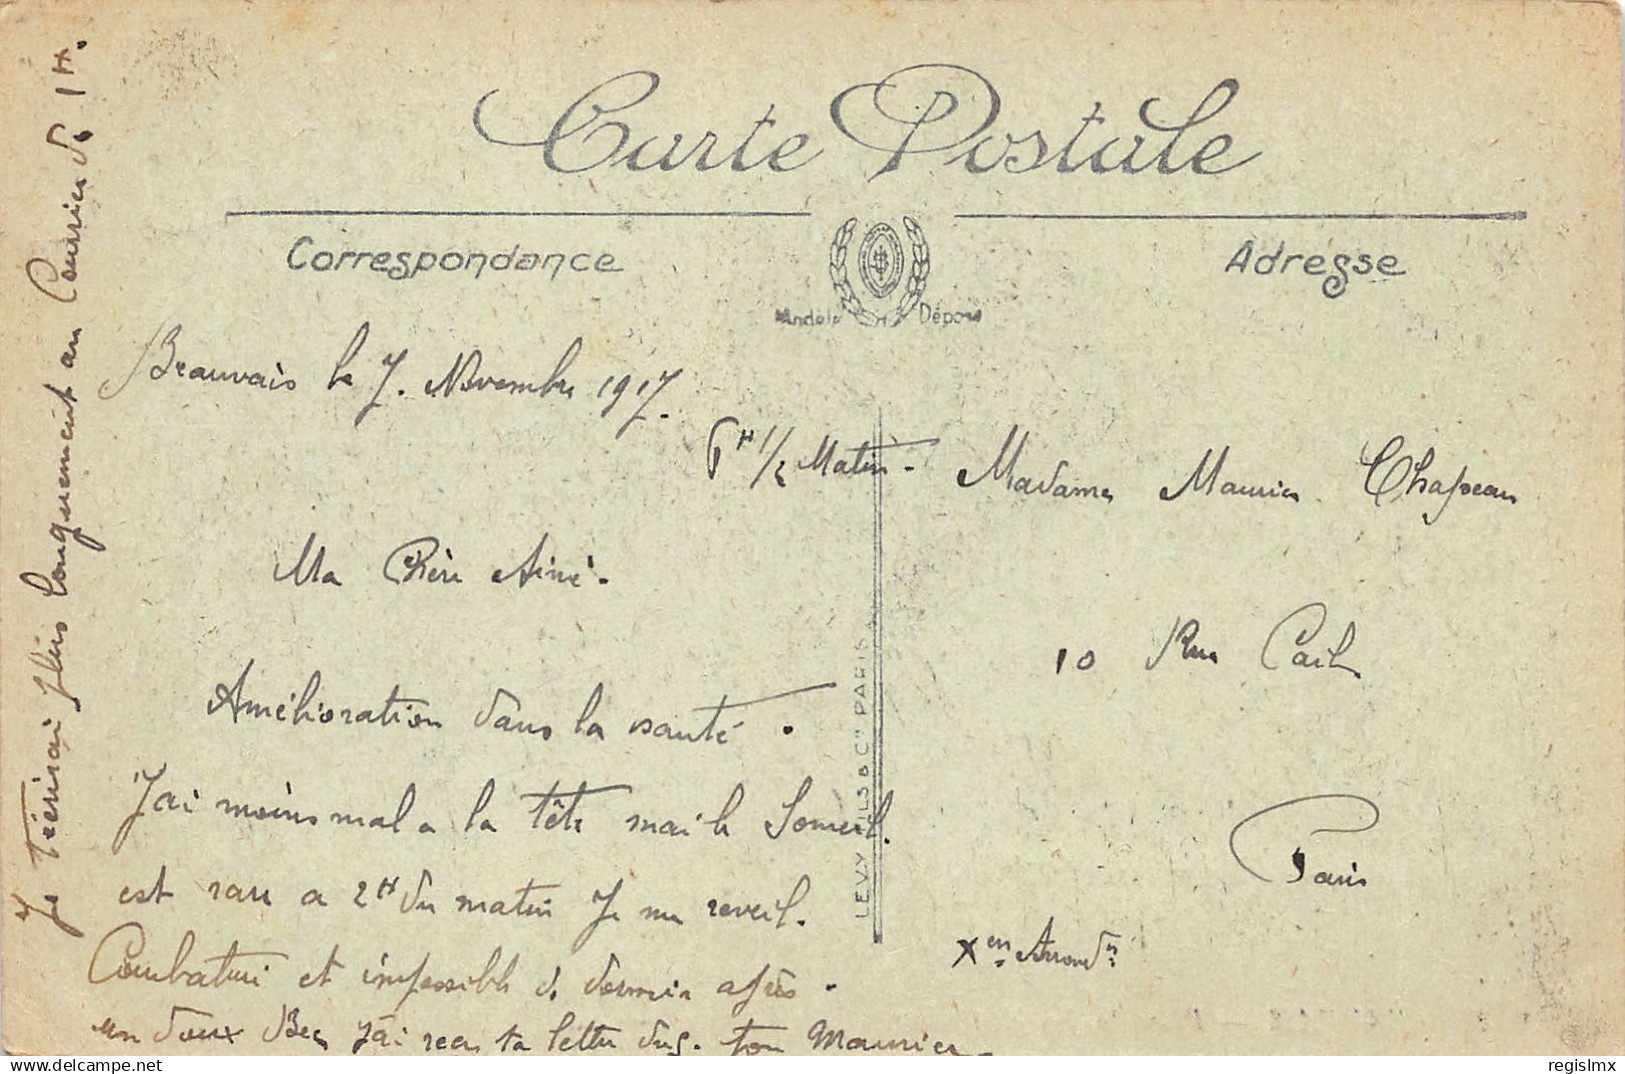 Carte Postale
Correspondance
Adresse
Modèle Déposé
Beauvais le 7. Novembre 1917.
6H 1/2 Matin.
Ma Chère Aimé.
Amélioration dans la santé.
J'ai moins mal a la tête mai le Someil.
est rare a 2H du matin Je me reveil.
et impossible de dormir après.
un doux Bec J'ai recu ta lettre du 5. ton Maurice
Je t'écrirai plus longuement au Courrier de 1H.
Madame Maurice Chapeau
10 Rue Cail
Paris
Xem Arrondt
LEVY FILS & Cie PARIS
delcampe.net
regislmx